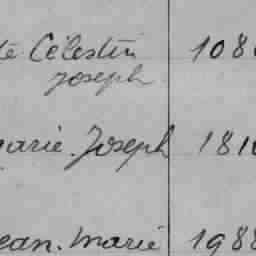 te Célestin 108
Joseph
marie. Joseph 181
ean. marie 1988